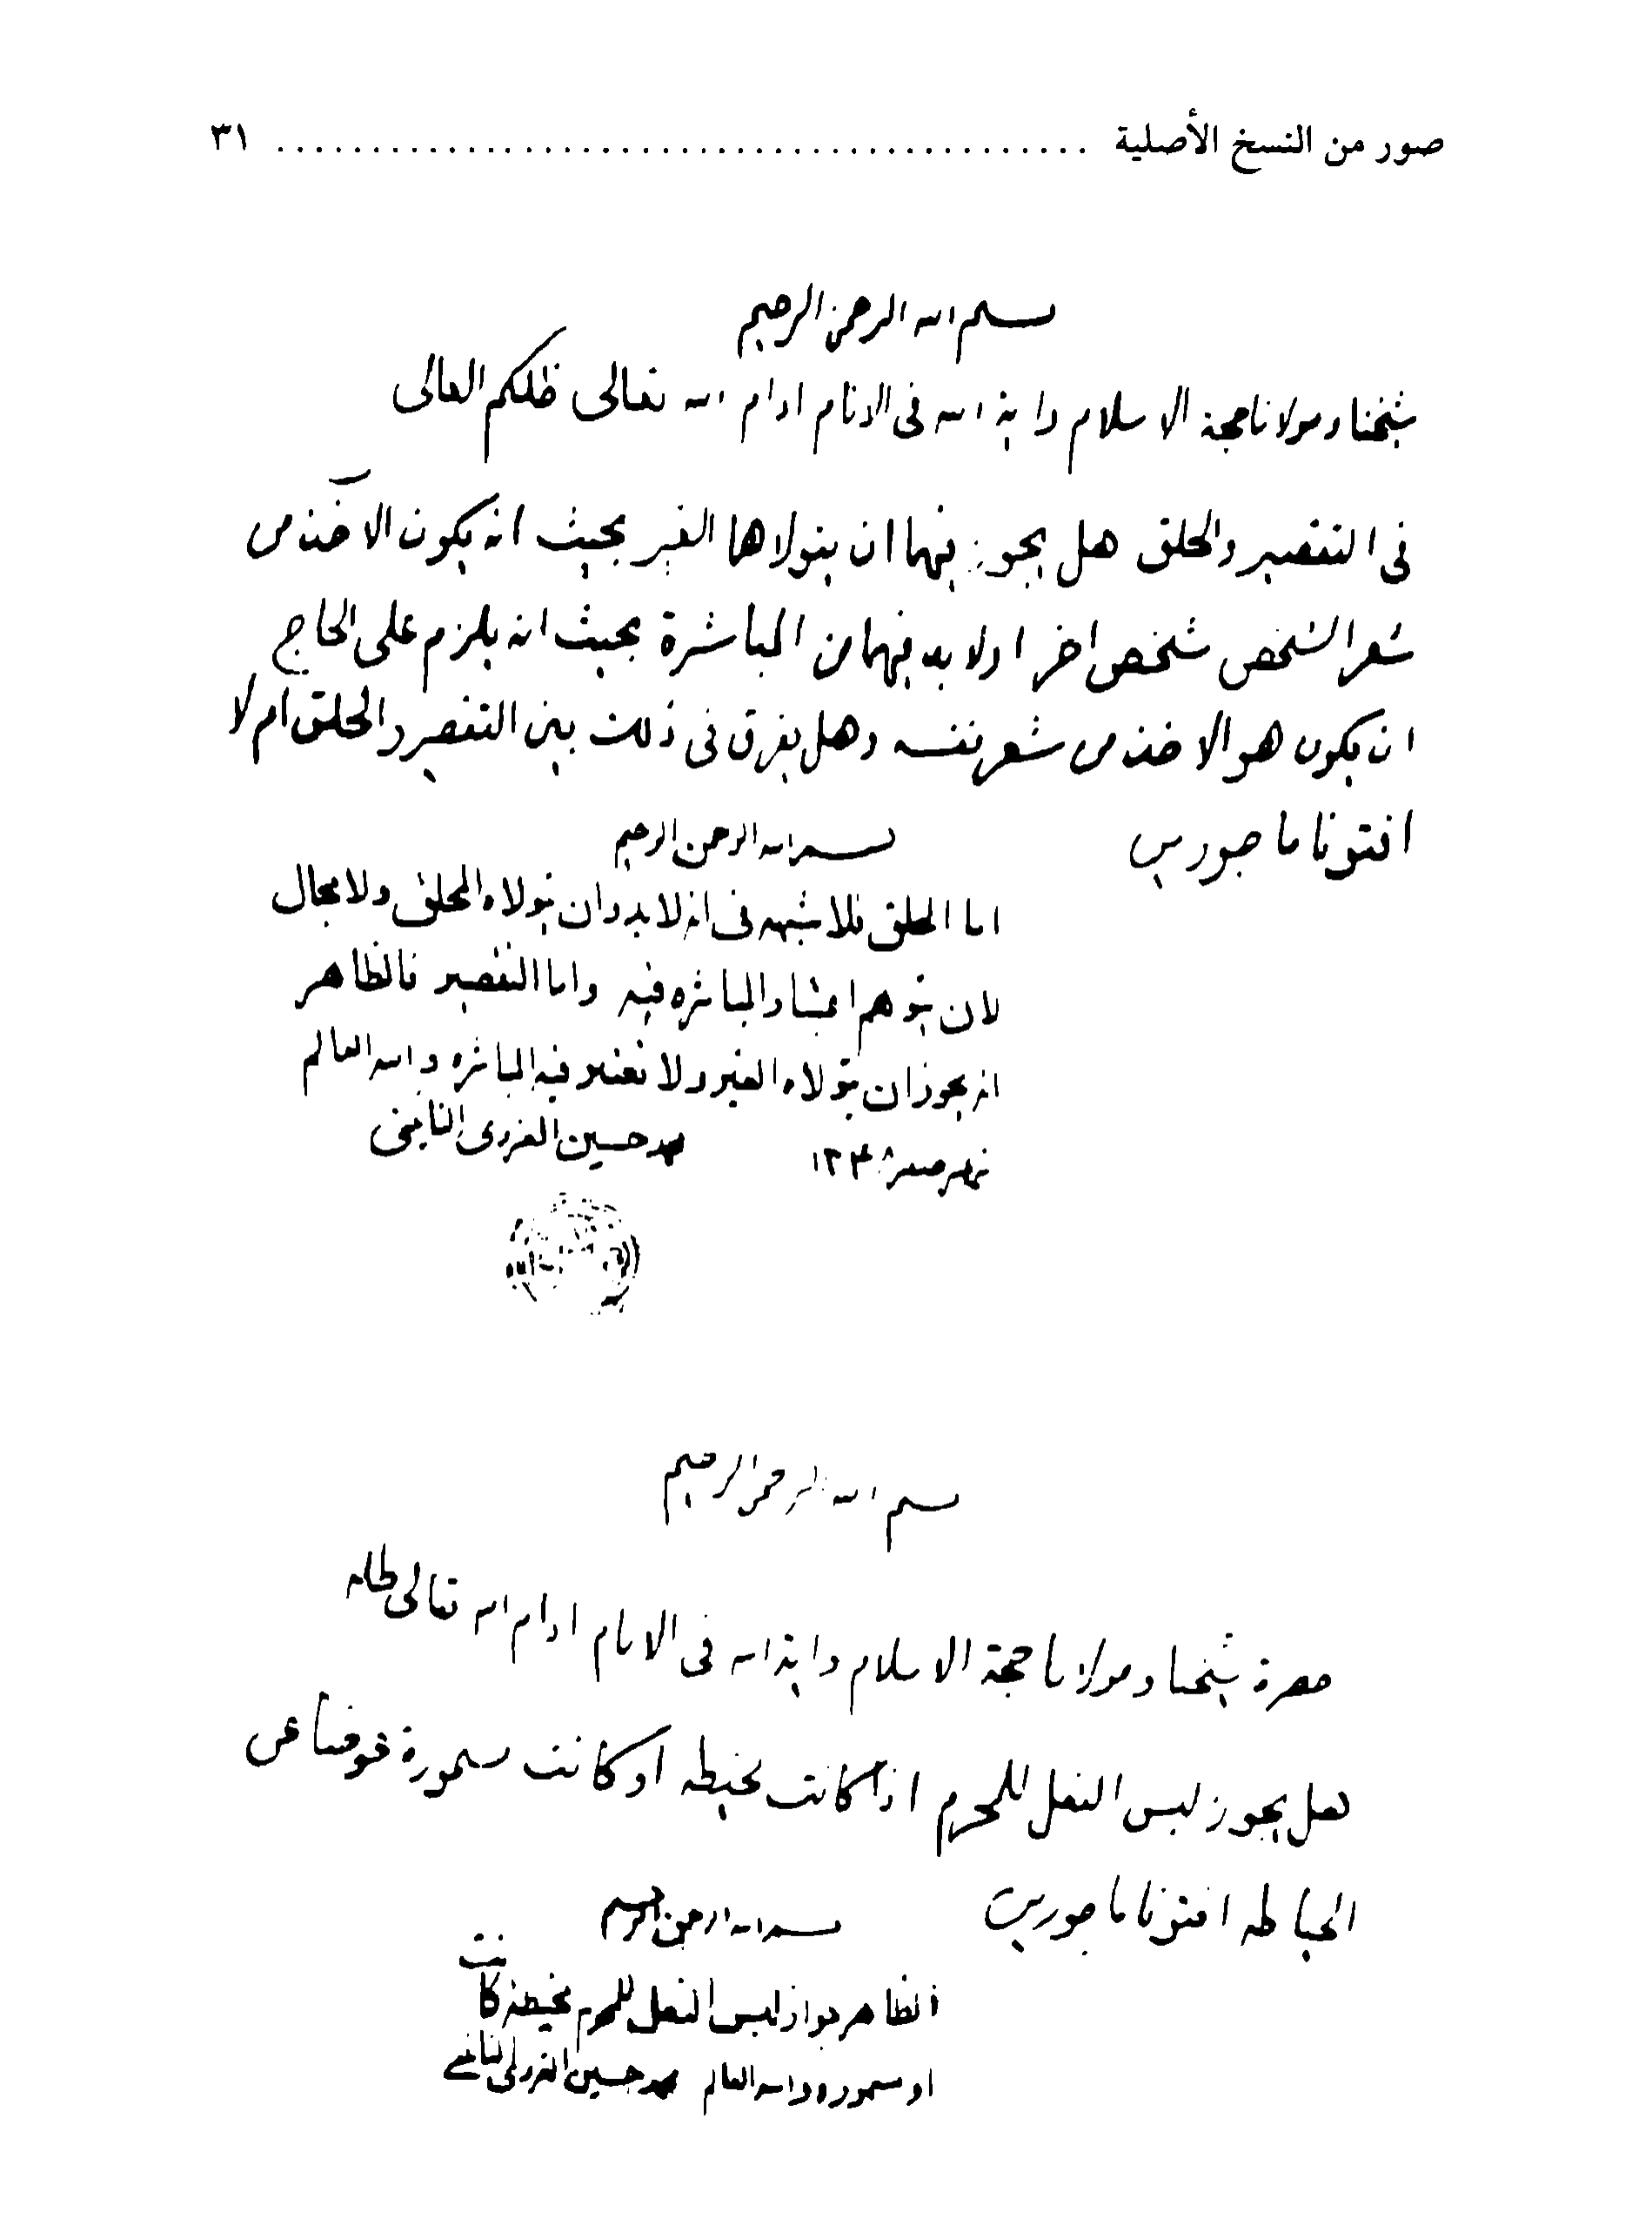 صور من النسخ الأصلية ........................................ ٣١
بسم الله الرحمن الرحيم
شيخنا ومولانا حجة الاسلام واية الله في الانام ادام الله تعالى ظلكم العالى
في التقصير والحلق هل يجوز فيهما ان يتولاهما الغير بحيث انه يكون الاخذ من
شعر الشخص شخص اخر اولا بد فيهما من المباشرة بحيث انه يلزم على الحاج
ان يكون هو الاخذ من شعر نفسه وهل يفرق في ذلك بين التقصير والحلق ام لا
افتونا ماجورين
بسم الله الرحمن الرحيم
اما الحلق فلا شبهه في انه لا بد وان يتولاه المحلق ولا مجال
لان يتوهم اعتبار المباشره فيه واما التقصير فالظاهر
انه يجوز ان يتولاه الغير ولا تعتبر فيه المباشره والله العالم
محمد حسين الغروى النائينى
صفر ١٣٤
بسم الله الرحمن الرحيم
حضرة شيخنا ومولانا حجة الاسلام واية الله في الانام ادام الله تعالى ظله
هل يجوز لبس النعل للمحرم اذا كانت مخيطه او كانت بسمورة عوضا عن
الخياطه افتونا ماجورين
بسم الله الرحمن الرحيم
الظاهر جواز لبس النعل للمحرم مخيطة كانت
او والله العالم محمد حسين الغروي النائيني